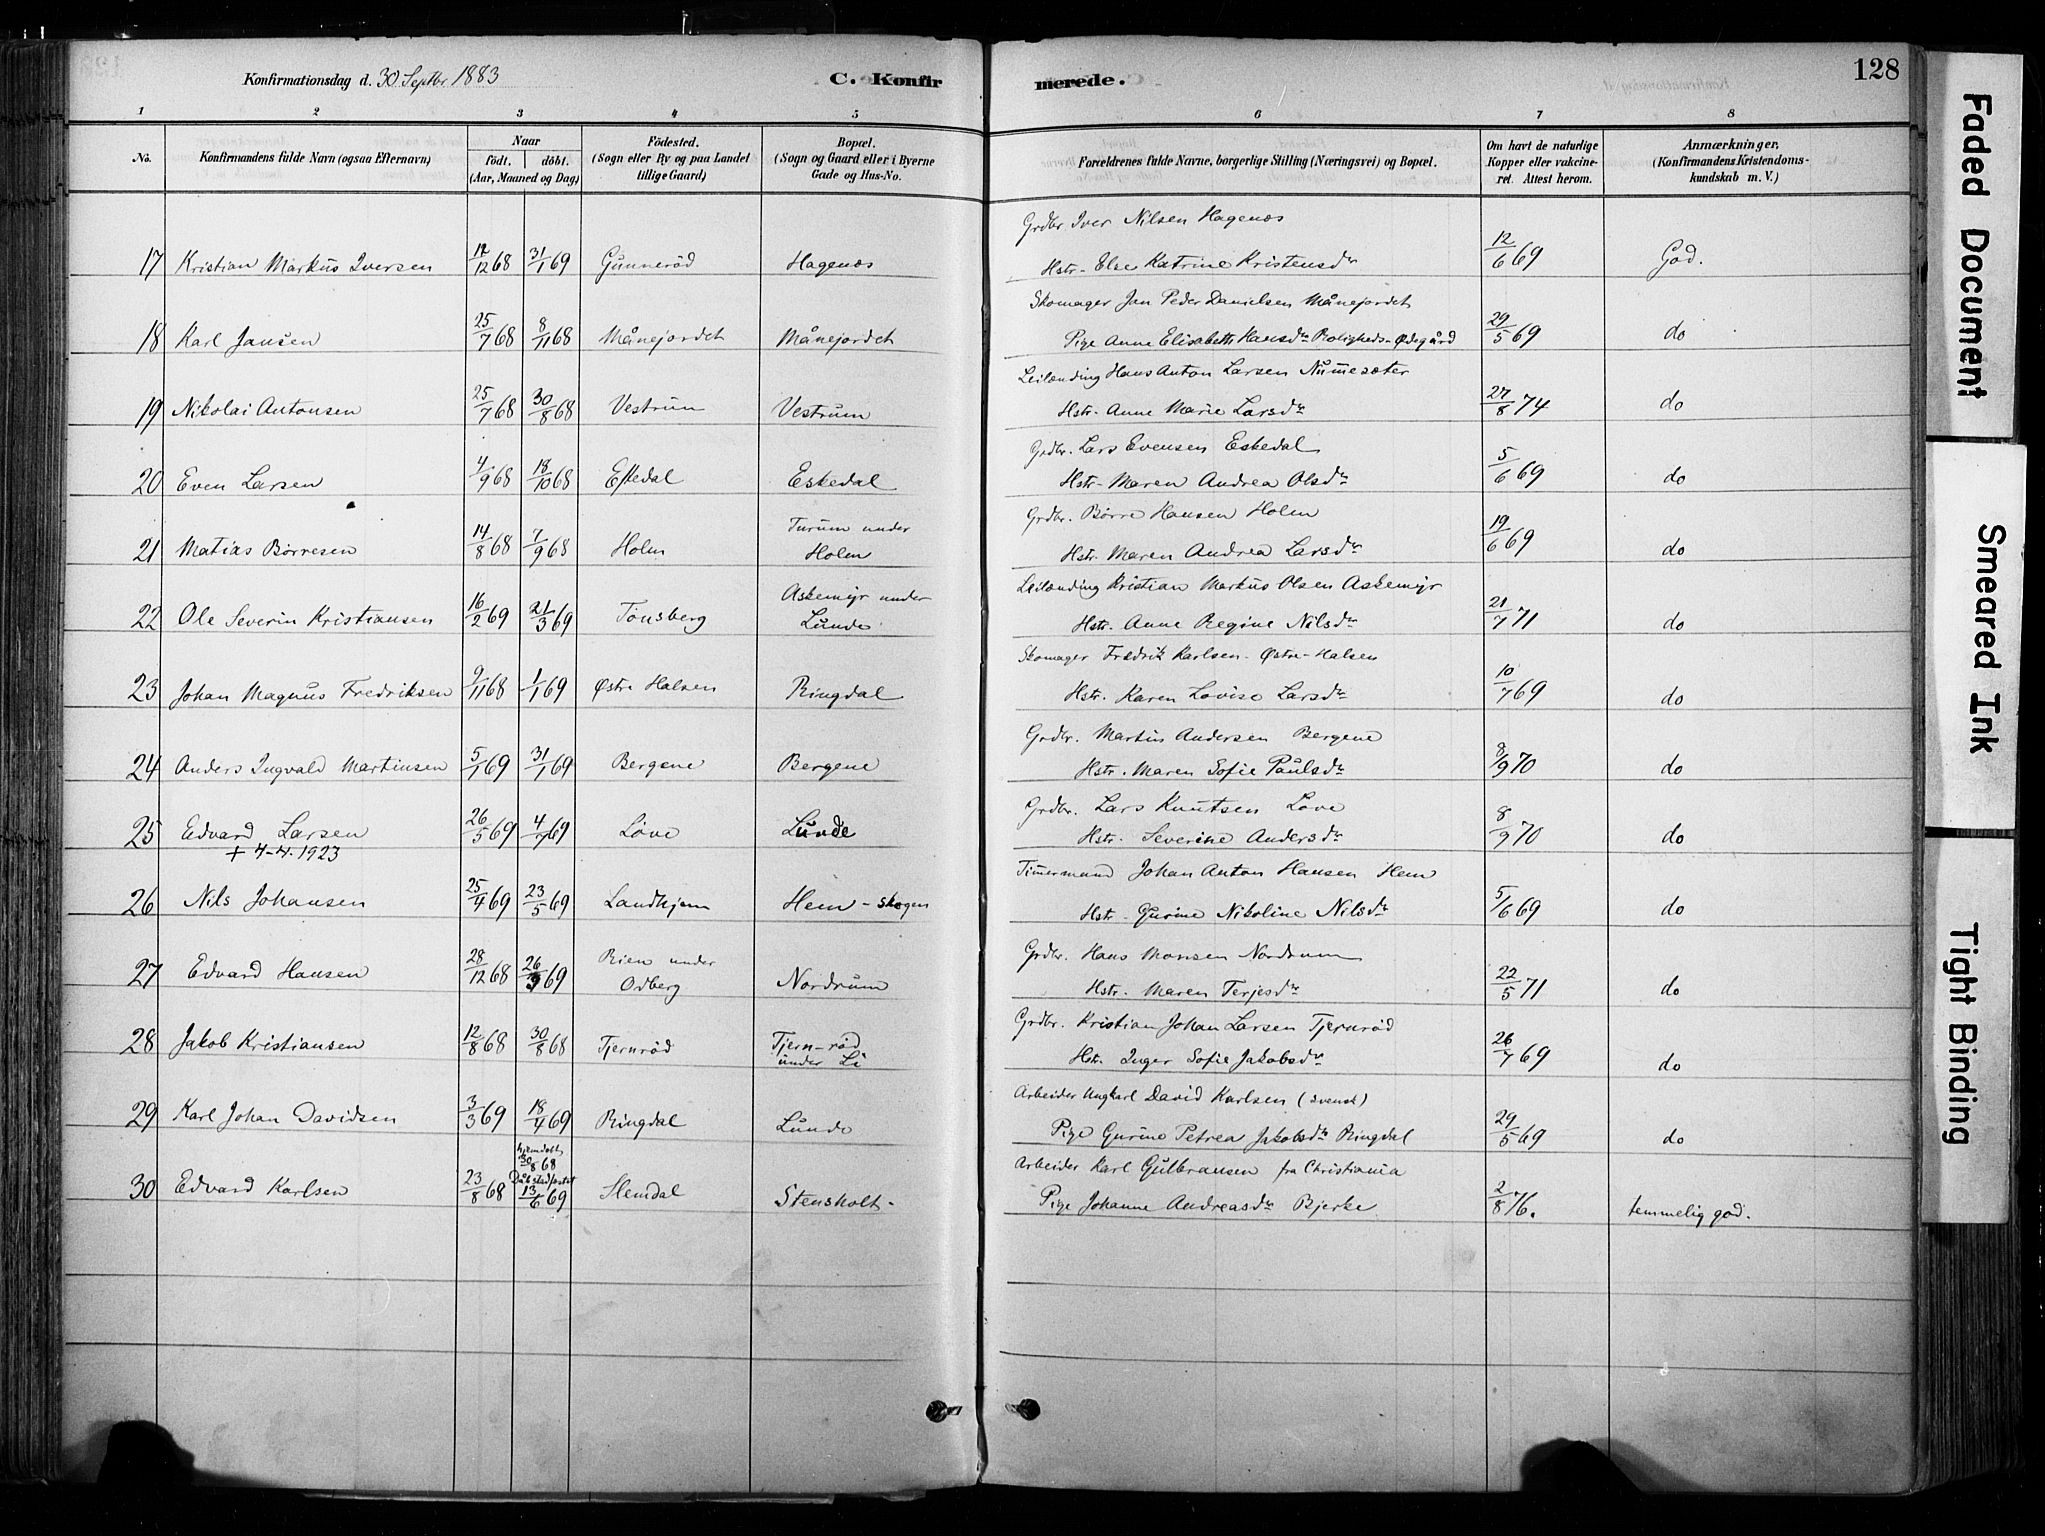 Konfirmationsdag d. 30 Septbr 1883
C. Konfirmerede.
128
1 2 3 4 5 6 7 8
No.
Konfirmandens fulde Navn (ogsaa Efternavn)
Naar
født. døbt.
(Aar, Maaned og Dag)
Födested.
(Sogn eller By og paa Landet
tillige Gaard)
Bopæl.
(Sogn og Gaard eller i Byerne
Gade og Hus-No.
Forældrenes fulde Navne, borgerlige Stilling (Næringsvei) og Bopæl.
Om havt de naturlige
Kopper eller vakcine-
ret. Attest herom.
Anmærkninger.
(Konfirmandens Kristendoms-
kundskab m. V.)
Grdbr. Iver Nilsen Hagenæs
17 Kristian Markus Iversen 12/12 68 31/1 69 Gunnerød Hagenæs Hstr. Else Katrine Kristensdr 12/6 69 God.
Skomager Jan Peder Danielsen Månejordet
18 Karl Jansen 25/7 68 8/11 68 Månejordet Månejordet Pige Anne Elisabeth Hansdr Roligheds-Ødegård 29/5 69 do
Leilænding Hans Anton Larsen Numesæter
19 Nikolai Antonsen 25/7 68 30/8 68 Vestrum Vestrum Hstr. Anne Marie Larsdr 27/8 74 do
Grdbr. Lars Evensen Eskedal
20 Even Larsen 4/9 68 18/10 68 Eskedal Eskedal Hstr. Maren Andrea Olsdr 5/6 69 do
Grdbr. Børre Hansen Holm
21 Matias Børresen 14/8 68 7/9 68 Holm Turum under
Holm Hstr. Maren Andrea Larsdr 19/6 69 do
Leilænding Kristian Markus Olsen Askemyr
22 Ole Severin Kristiansen 16/2 69 21/3 69 Tønsberg Askemyr under
Lunde Hstr. Anne Regine Nilsdr 21/7 71 do
Skomager Fredrik Karlsen Østre-Halsen
23 Johan Magnus Fredriksen 9/11 68 1/1 69 Østre Halsen Ringdal Hstr. Karen Lovise Larsdr 10/7 69 do
Grdbr. Martin Andersen Bergene
24 Anders Ingvald Martinsen 5/1 69 31/1 69 Bergene Bergene Hstr. Maren Sofie Paulsdr 8/9 70 do
Grdbr. Lars Knutsen Løve
25 Edvard Larsen 26/5 69 4/7 69 Løve Lunde Hstr. Severine Andersdr 8/9 70 do
+ 4-4. 1923
Timermand Johan Anton Hansen Hem
26 Nils Johansen 25/4 69 23/5 69 Landhjem Hem-skogen Hstr. Gurine Nikoline Nilsdr 5/6 69 do
Grdbr. Hans Monsen Nordrum
27 Edvard Hansen 28/12 68 26/3 69 Rien under
Odberg Nordrum Hstr. Maren Terjesdr 22/5 71 do
Grdbr. Kristian Johan Larsen Tjernrød
28 Jakob Kristiansen 12/8 68 30/8 68 Tjernrød Tjern-rød
under Li Hstr. Inger Sofie Jakobsdr 26/7 69 do
Arbeider Ungkarl David Karlsen (svensk)
29 Karl Johan Davidsen 3/3 69 18/4 69 Ringdal Lunde Pige Gurine Petrea Jakobsdr Ringdal 29/5 69 do
hjemdøbt
30/8 68
Arbeider Karl Gulbransen fra Christiania
30 Edvard Karlsen 23/8 68 13/6 69 Hemdal Stensholt. Pige Johanne Andreasdr Bjerke 2/8 76. temmelig god.
Faded Document
Smeared Ink
Tight Binding